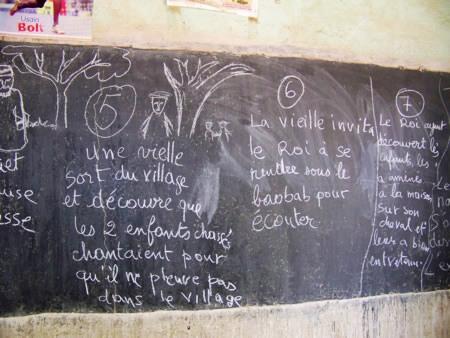 Usain
Bolt
5
une vielle
sort du village
et découvre que
les 2 enfants chassés
chantaient pour
qu'il ne pleuve pas
dans le village
6
La vieille invita
le Roi à se
rendre sous le
baobab pour
écouter
7
Le Roi ayant
découvert les
enfants, les
a amenés
à la maison
sur son
cheval et
leur a bien
entretenu.